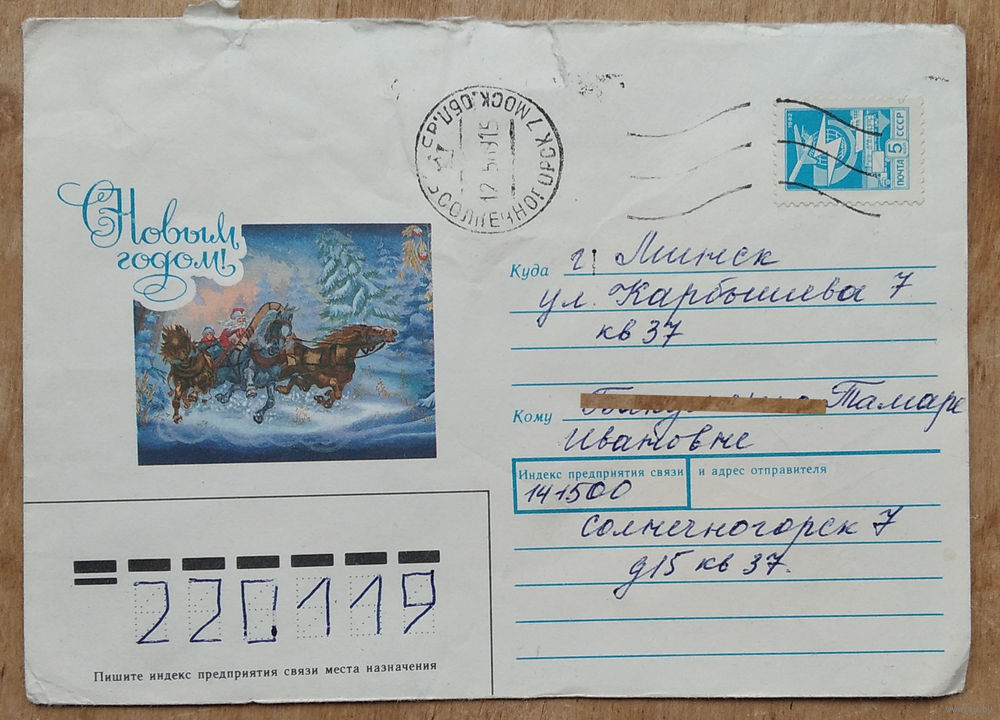 СОЛНЕЧНОГОРСК 7 МОСК.ОБЛ.
1982
ПОЧТА 5 СССР
С Новым
годом!
Куда г. Минск
ул. Карбышева 7
кв 37
Кому Тамаре
Ивановне
Индекс предприятия связи и адрес отправителя
141500
Солнечногорск 7
д15 кв 37.
220119
Пишите индекс предприятия связи места назначения